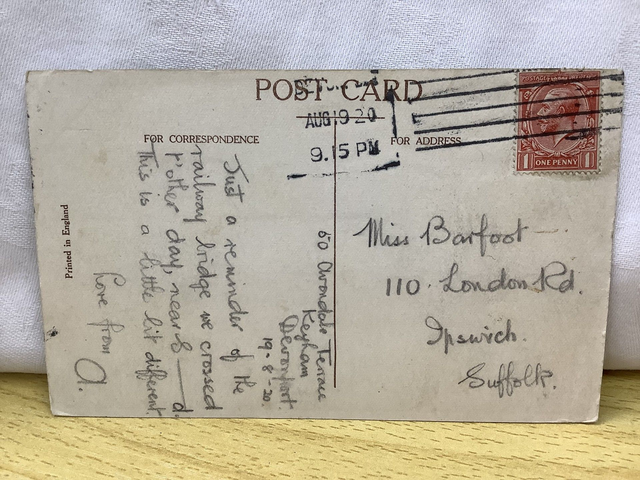 POST CARD
AUG 19 20
9.15 PM
FOR CORRESPONDENCE
FOR ADDRESS
POSTAGE REVENUE
1 ONE PENNY 1
Printed in England
60 Avondale Terrace
Keyham
Devonport.
19-8-20.
Just a reminder of the
railway bridge we crossed
t'other day, near S——d.
This is a little bit different.
Love from
A.
Miss Barfoot
110. London Rd.
Ipswich.
Suffolk.